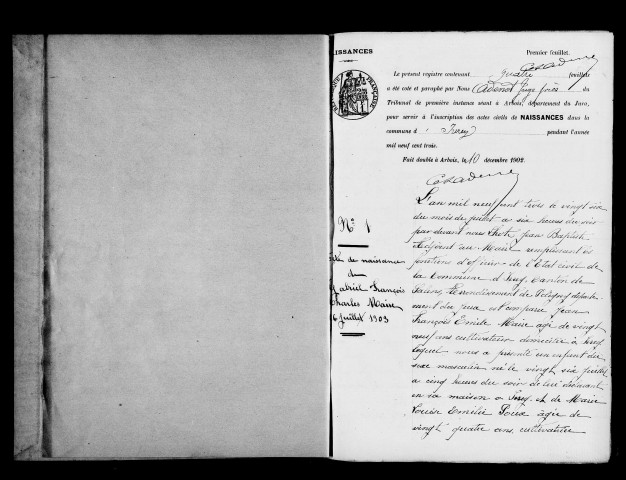 NAISSANCES
Premier feuillet.
Le présent registre contenant quatre feuillets
a été coté et paraphé par Nous Cadenot Juge près du
Tribunal de première instance séant à Arbois, département du Jura,
pour servir à l'inscription des actes civils de NAISSANCES dans la
commune d' Ivrey pendant l'année
mil neuf cent trois.
Fait double à Arbois, le 10 décembre 1902.
N° 1
Acte de naissance
du
Gabriel François
Charles Maire
26 Juillet 1903
L'an mil neuf cent trois à vingt six
du mois de juillet a six heures du soir
par devant nous Jean Baptiste
adjoint au Maire remplissant les
fonctions d'officier de l'Etat civil de
la Commune d'Ivrey, Canton de
Salins, Arrondissement de Poligny départe-
ment du Jura est comparu Jean
François Emile Maire agé de vingt
neuf ans cultivateur domicilié à Ivrey
lequel nous a présenté un enfant du
sexe masculin né le vingt six juillet
a cinq heures du soir de lui déclarant
en sa maison a Ivrey et de Marie
Louise Emélie Poux agée de
vingt quatre ans, cultivatrice